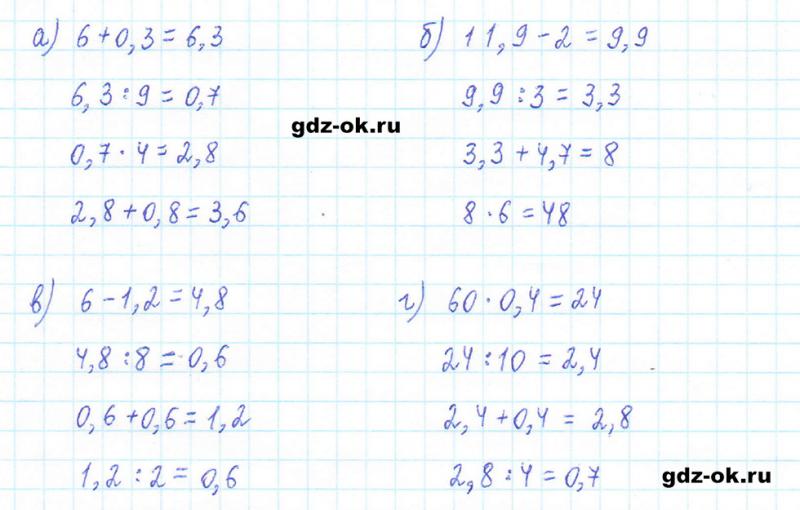 а) 6 + 0,3 = 6,3
6,3 : 9 = 0,7
0,7 · 4 = 2,8
2,8 + 0,8 = 3,6
б) 11,9 - 2 = 9,9
9,9 : 3 = 3,3
3,3 + 4,7 = 8
8 · 6 = 48
gdz-ok.ru
в) 6 - 1,2 = 4,8
4,8 : 8 = 0,6
0,6 + 0,6 = 1,2
1,2 : 2 = 0,6
г) 60 · 0,4 = 24
24 : 10 = 2,4
2,4 + 0,4 = 2,8
2,8 : 4 = 0,7
gdz-ok.ru